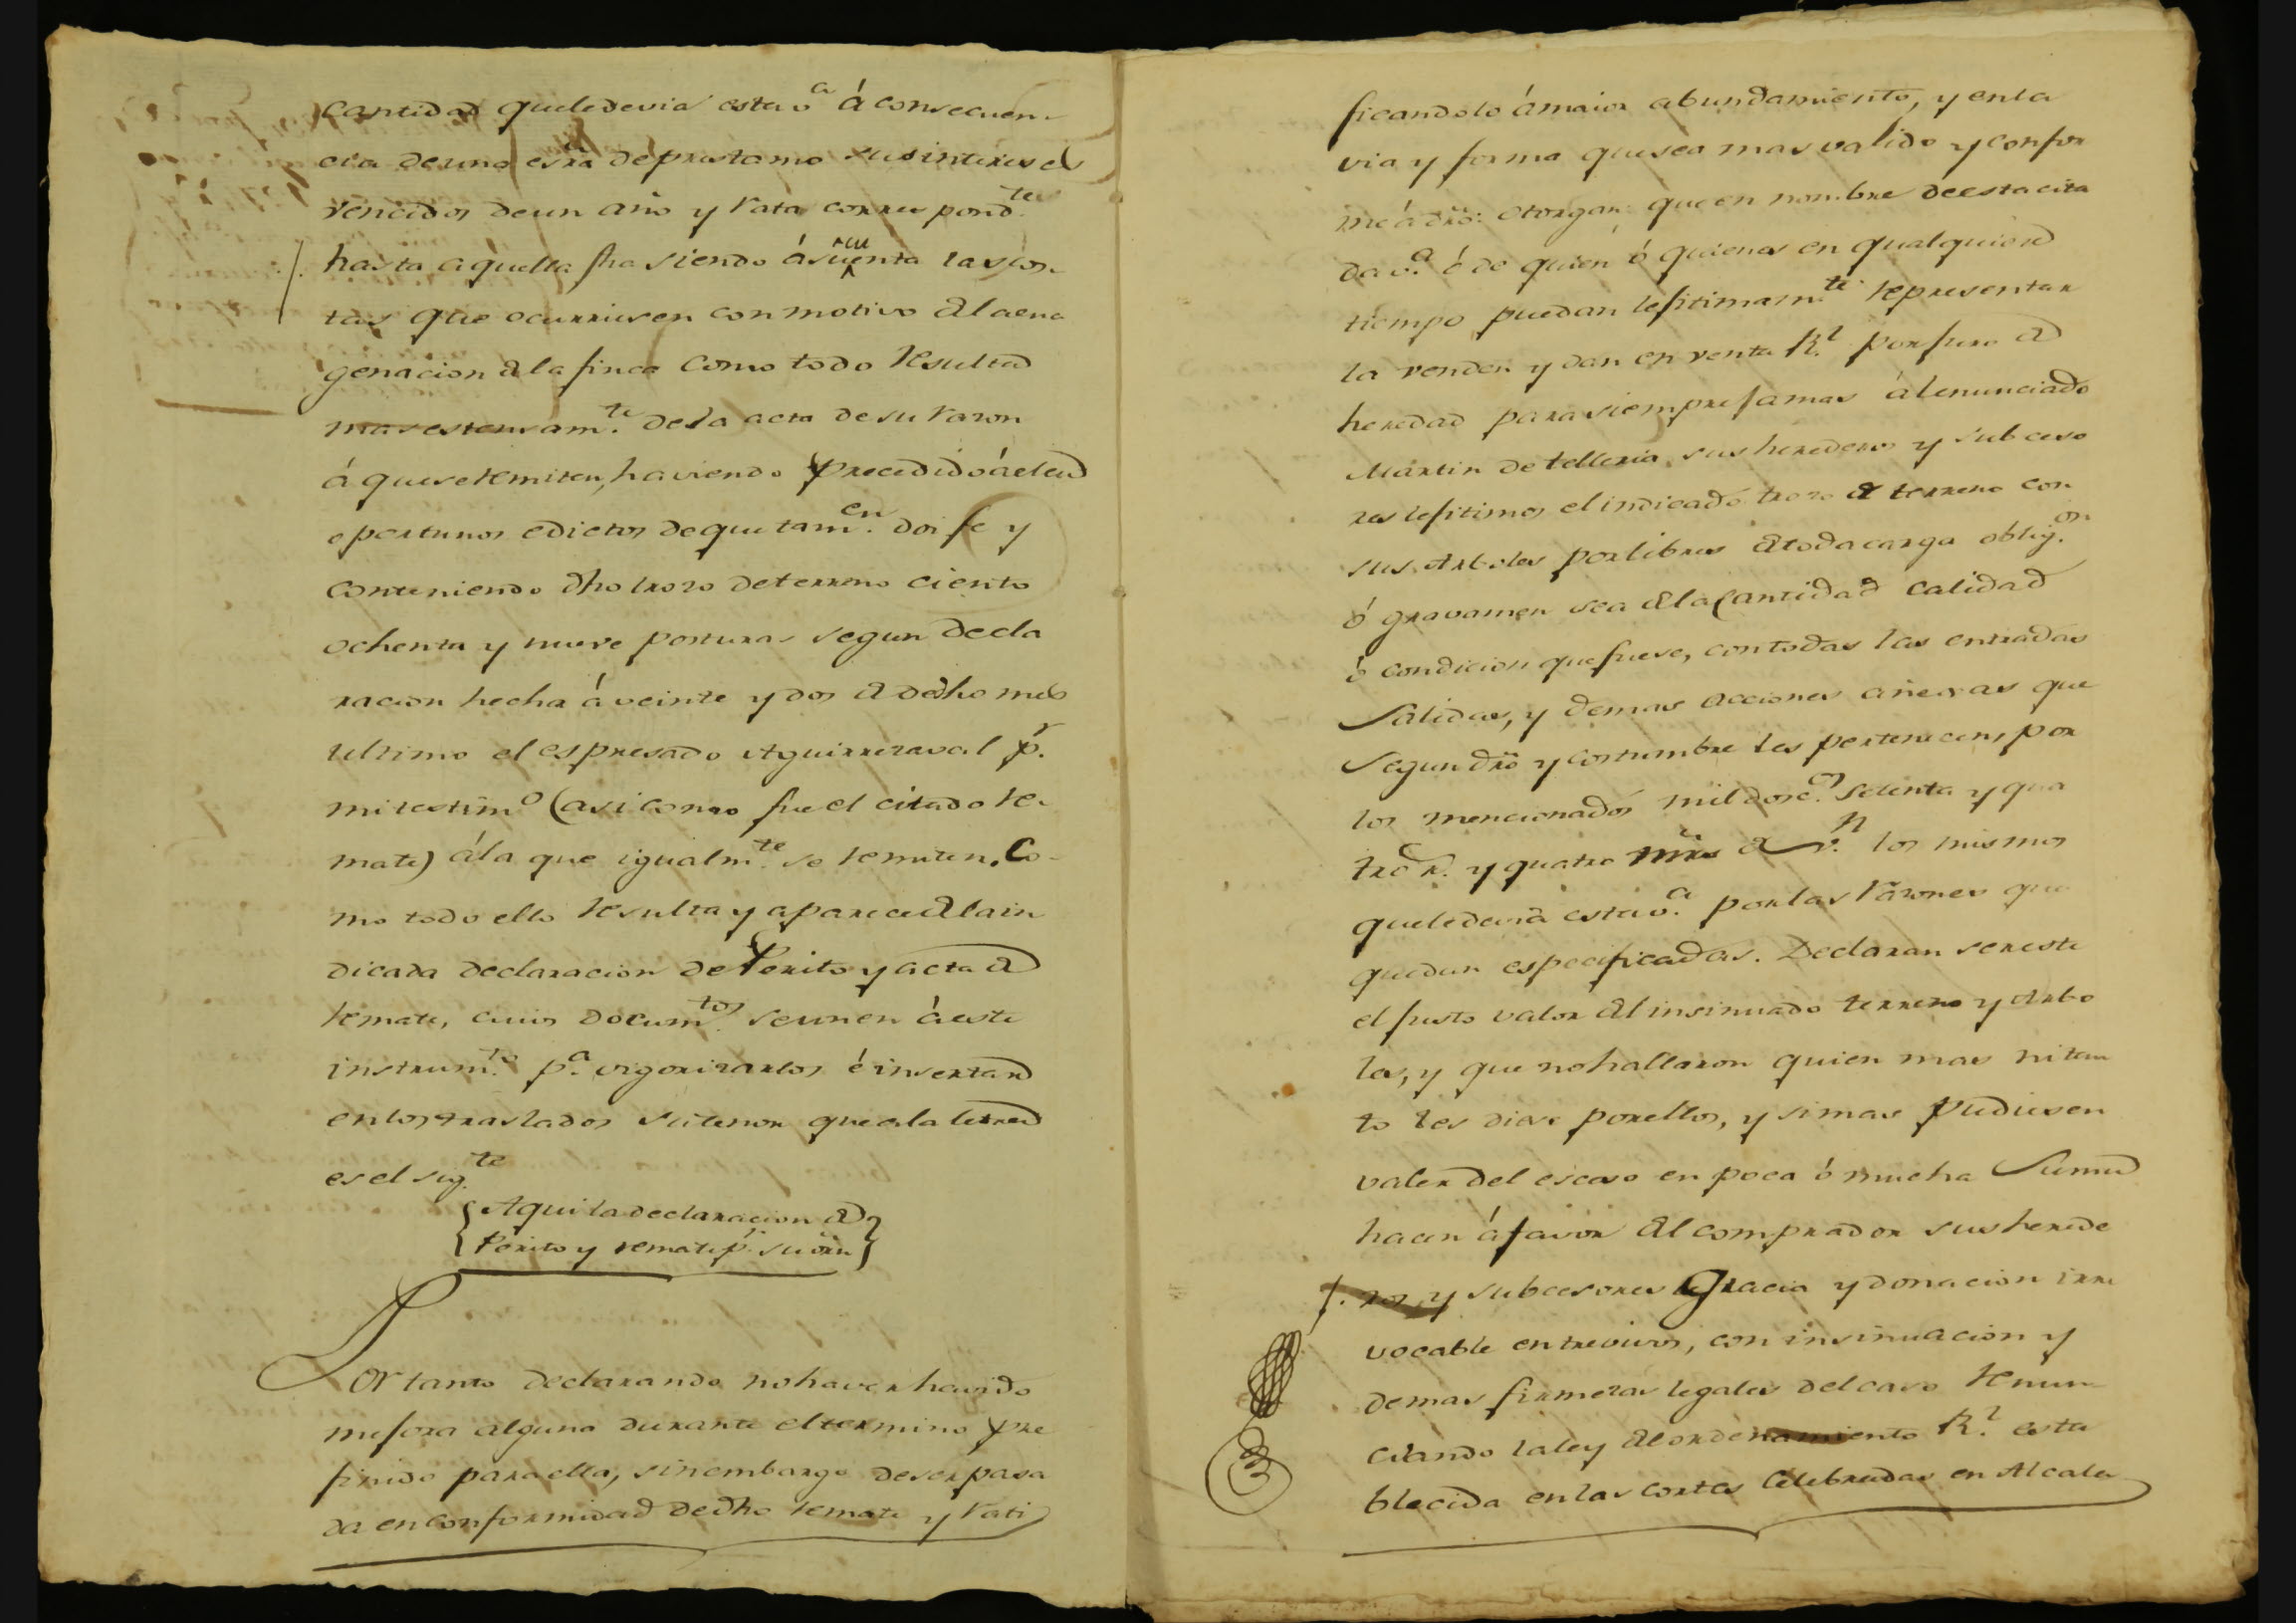 Cantidad que le devia esta v.a á consecuen-
cia de una esrã de prestamo sus intereses
vencidos de un año y rata correspond.te
hasta aquella fha siendo á su cuenta las cos-
tas que ocurriesen con motivo de la ena
genacion de la finca como todo resulta
mas estensam.te de la acta de su razon
á que se remiten, haviendo precedido á ella
oportunos edictos de que tam.en doi fe y
conteniendo dho trozo de terreno ciento
ochenta y nueve posturas segun decla
racion hecha á veinte y dos de dho mes
ultimo el espresado Aguirrezaval p.r
mi testim.o (asi como fue el citado re-
mate) á la que igualm.te se remiten. Co-
mo todo ello resulta y aparece de la in
dicada declaracion de Perito y acta de
remate, cuios docum.tos se unen á este
instrum.to p.a vigorizarlos é insertar
en los traslados su tenor que a la letra
es el sig.te
{Aqui la declaracion de}
{Perito y remate p.r su orn}
Por tanto declarando no haver havido
mejora alguna durante el termino pre
finido para ella, sin embargo de ser pasa
da en conformidad de dho remate y rati
ficandolo á maior abundamiento, y en la
via y forma que sea mas valido y confor
me á dro: otorgan: que en nombre de esta cita
da v.a é de quien ó quienes en qualquiera
tiempo puedan lejitimam.te representar
la venden y dan en venta R.l por juro de
heredad para siempre jamas al enunciado
Martin de telleria, sus herederos y subceso
res lejitimos el indicado trozo de terreno con
sus Arboles por libres de toda carga oblig.on
ó gravamen sea de la Cantidad calidad
ó condicion que fuese, con todas las entradas
Salidas, y demas acciones añexas que
Segun dro y costumbre les pertenecen, por
los mencionados mil dosc.s setenta y qua
tro r. y quatro mrs de v.n los mismos
que le devia esta v.a por las razones que
quedan especificadas. Declaran ser este
el justo valor del insinuado terreno y Arbo
les, y que no hallaron quien mas ni tan
to les diese por ellos, y si mas pudiesen
valer del esceso en poca ó mucha Suma
hacen á favor del comprador sus herede
ros y subcesores Gracia y donacion irre
vocable entrevivos, con insinuacion y
demas firmezas legales del caso renun-
ciando la ley del ordenamiento R.l esta
blecida en las cortes Celebradas en Alcala